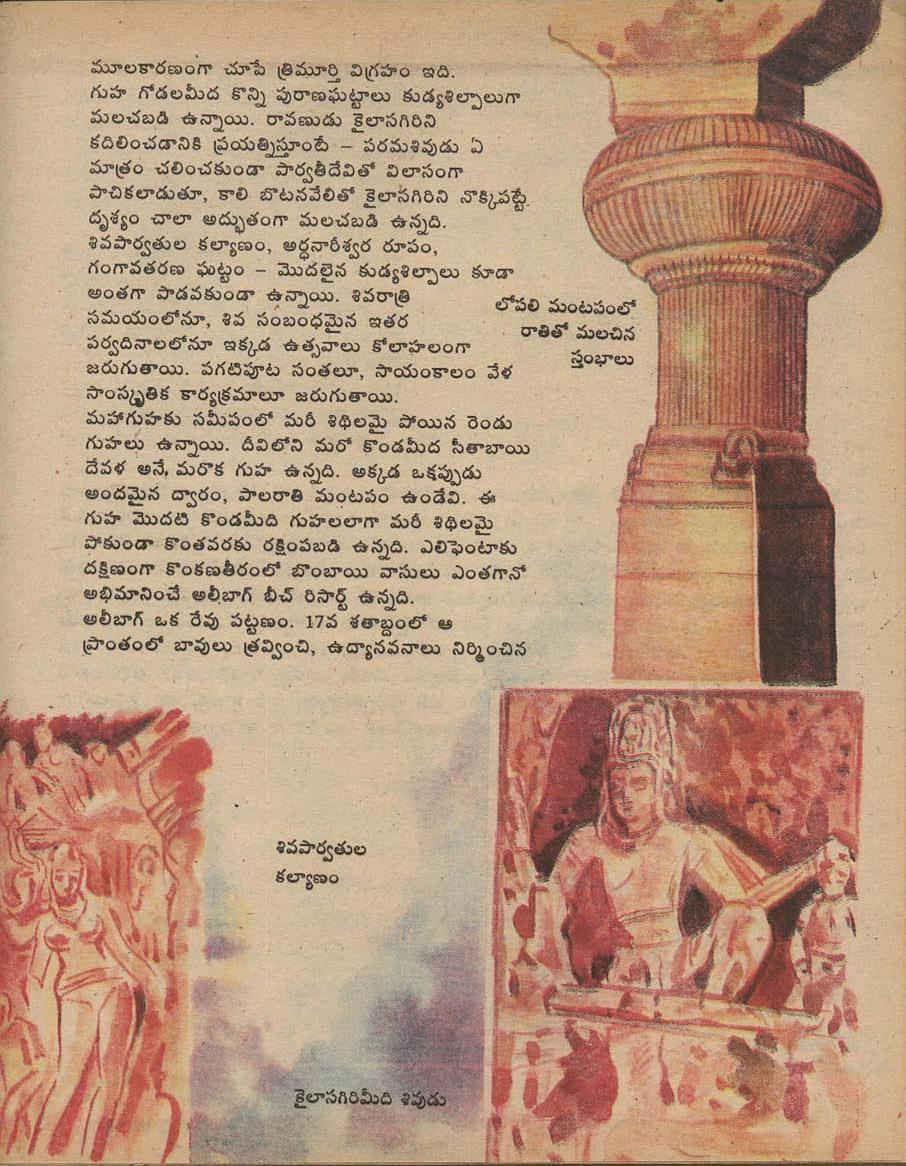 మూలకారణంగా చూపే త్రిమూర్తి విగ్రహం ఇది.
గుహ గోడలమీద కొన్ని పురాణఘట్టాలు కుడ్యశిల్పాలుగా
మలచబడి ఉన్నాయి. రావణుడు కైలాసగిరిని
కదిలించడానికి ప్రయత్నిస్తూంటే – పరమశివుడు ఏ
మాత్రం చలించకుండా పార్వతీదేవితో విలాసంగా
పాచికలాడుతూ, కాలి బొటనవేలితో కైలాసగిరిని నొక్కిపట్టే
దృశ్యం చాలా అద్భుతంగా మలచబడి ఉన్నది.
శివపార్వతుల కల్యాణం, అర్ధనారీశ్వర రూపం,
గంగావతరణ ఘట్టం – మొదలైన కుడ్యశిల్పాలు కూడా
అంతగా పాడవకుండా ఉన్నాయి. శివరాత్రి
సమయంలోనూ, శివ సంబంధమైన ఇతర
పర్వదినాలలోనూ ఇక్కడ ఉత్సవాలు కోలాహలంగా
జరుగుతాయి. పగటిపూట సంతలూ, సాయంకాలం వేళ
సాంస్కృతిక కార్యక్రమాలూ జరుగుతాయి.
మహాగుహకు సమీపంలో మరీ శిథిలమై పోయిన రెండు
గుహలు ఉన్నాయి. దీవిలోని మరో కొండమీద సీతాబాయి
దేవళ అనే, మరొక గుహ ఉన్నది. అక్కడ ఒకప్పుడు
అందమైన ద్వారం, పాలరాతి మంటపం ఉండేవి. ఈ
గుహ మొదటి కొండమీది గుహలలాగా మరీ శిథిలమై
పోకుండా కొంతవరకు రక్షింపబడి ఉన్నది. ఎలిఫెంటాకు
దక్షిణంగా కొంకణతీరంలో బొంబాయి వాసులు ఎంతగానో
అభిమానించే అలీబాగ్ బీచ్ రిసార్ట్ ఉన్నది.
అలీబాగ్ ఒక రేవు పట్టణం. 17వ శతాబ్దంలో ఆ
ప్రాంతంలో బావులు త్రవ్వించి, ఉద్యానవనాలు నిర్మించిన
లోపలి మంటపంలో
రాతితో మలచిన
స్తంభాలు
శివపార్వతుల
కల్యాణం
కైలాసగిరిమీది శివుడు